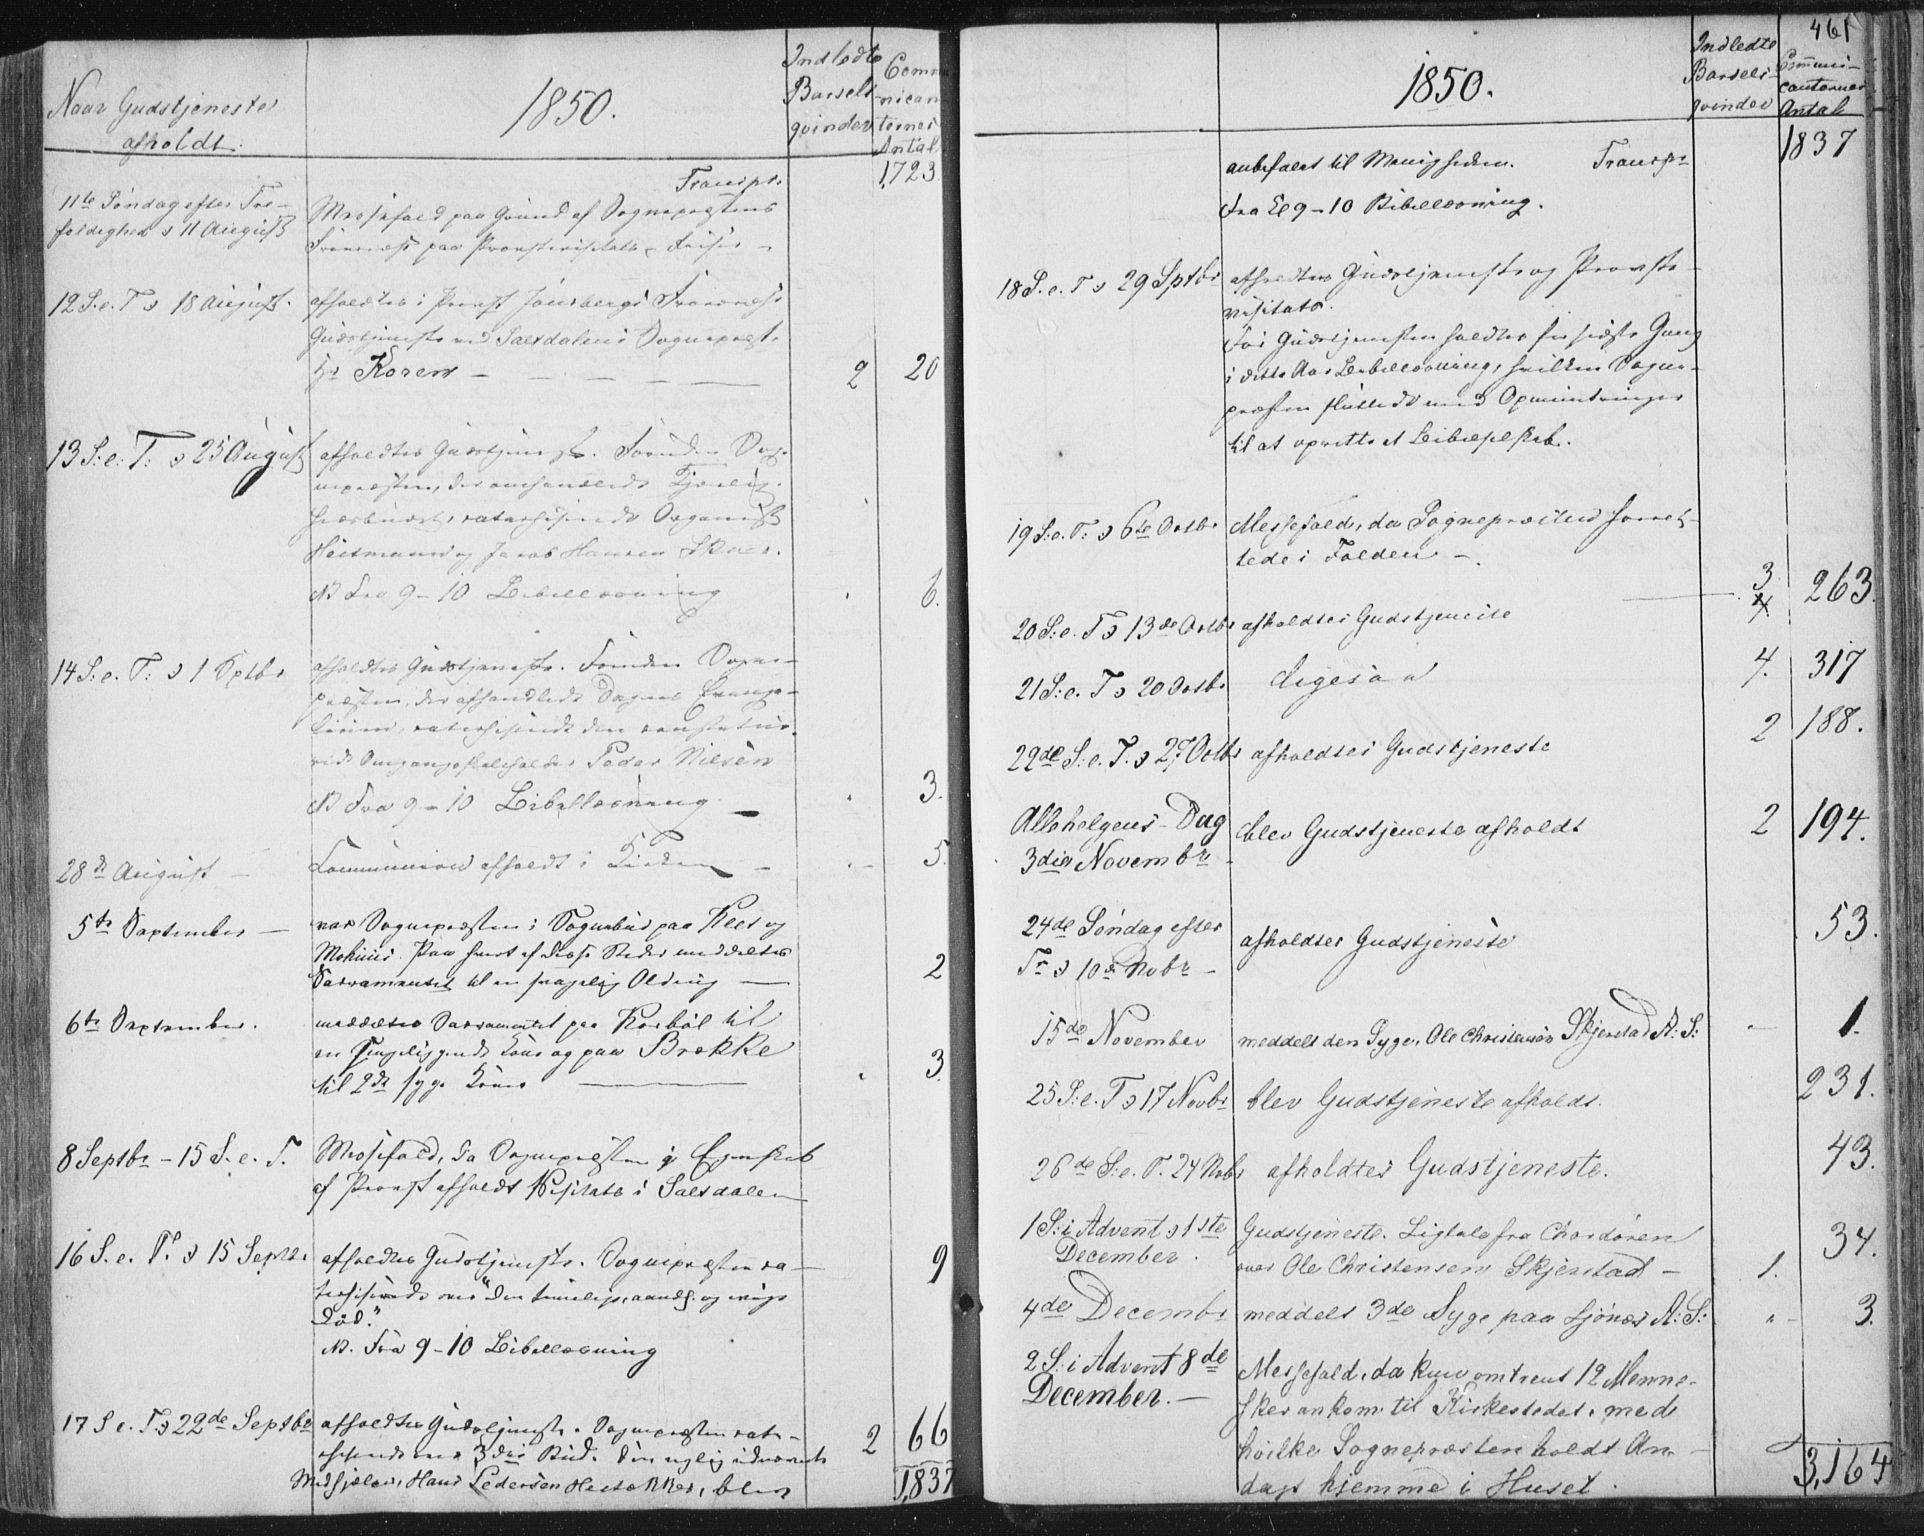 Naar Gudstjenester
afholdt.
1850.
Indledte
Barsels
qvinder
Commu
nican
ternes
Antal
Transpt.
1,723.
11te Søndag efter Tre-
foldighed d 11 August
Messefald paa Grund af Sognepræstens
Fraværelse paa Provstevisitats
12 S. e. T. d 18 August.
afholdtes i Provst Jonsbergs Fraværelse
Gudstjeneste ved Saltdalens Sognepræst
Hr Koren
2
20
13 S: e. T: d 25 August
afholdtes Gudstjeneste. Foruden Sog-
nepræsten, der omhandlede Kjærlig-
hedsbudet, catechiserede Organist
Heitmann og Jacob Hansen
NB Fra 9-10 Bibellæsning
6.
14 S: e. T: d 1 Sptbr
afholdtes Gudstjeneste. Foruden Sogne-
præsten, der afhandlede Dagens Evange-
lium, catechiserede den constitue-
rede Omgangsskoleholder Peder Nilsen
NB Fra 9-10 Bibellæsning
3.
28de August
Communion afholdt i Kirken
5.
5te September
var Sognepræsten i Sognebud paa Kles og
Paa hvert af disse Steder meddeltes
Sacramentet til en svagelig Olding
2
6te September.
meddeltes Sacramentet paa til
en Sengeliggende Kone og paa Brekke
til 2de syge Koner
3.
8 Septbr - 15 S. e. T.
Messefald, da Sognepræsten i Egenskab
af Provst afholdt Visitats i Saltdalen
16 S. e. T. d 15 Septbr.
afholdtes Gudstjeneste. Sognepræsten ca-
techiserede over "den timelige, aandl. og evige
Død."
NB. Fra 9-10 Bibellæsning
9
17 S e. T. d 22de Septbr
afholdtes Gudstjeneste. Sognepræsten cate-
chiserede over 3die Bud. Den nylig udnævnte
Medhjælper, Hans Pedersen Hestækker, blev
2
66
1,837
461
1850.
Indledte
Barsels-
qvinder
Communi-
canternes
Antal
anbefalet til Menigheden. Transpt
1837
Fra Kl 9-10 Bibellæsning.
18 S. e. T d 29 Sptbr
afholdtes Gudstjeneste og Provste-
visitats.
Før Gudstjenesten holdtes for sidste Gang
i dette Aar Bibellæsning, hvilken Sogne-
præsten sluttede med Opmuntringer
til at oprette et Bibelselskab.
19 S: e. T: d 6te Octbr
Messefald, da Sognepræsten forret-
tede i Folden -.
20 S: e. T d 13de Octbr
afholdtes Gudstjeneste
3
4
263.
21 S: e. T d 20 Octbr
ligesaa
4.
317
22de S: e. T. d 27 Octbr
afholdtes Gudstjeneste
2
188.
Allehelgens-Dag
3die Novembr
blev Gudstjeneste afholdt
2
194.
24de Søndag efter
Tr d 10de Nobr
afholdtes Gudstjeneste
53.
15de November
meddelt den Syge, Ole Christensen Skjerstad A: S:
1.
25 S: e. T d 17 Novbr
blev Gudstjeneste afholdt.
231.
26de S: e. T. 24 Nobr
afholdtes Gudstjeneste.
43.
1 S: i Advent d 1ste
December.
Gudstjeneste. Ligtale fra Chordøren
over Ole Christensen Skjerstad -
1.
34.
4de Decembr
meddelt 3de Syge paa Ljønes A: S:
"
3.
2 S: i Advent 8de
December. -
Messefald, da kun omtrent 12 Menne-
sker ankom til Kirkestedet, med
hvilke Sognepræsten holdt An-
dagt hjemme i Huset.
3,164